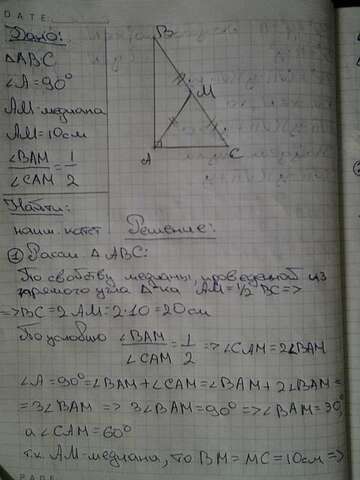 DATE:
Дано:
△ABC
∠A=90°
AM-медиана
AM=10см
∠BAM/∠CAM=1/2
Найти:
наим. катет
B
M
A
C
Решение:
① Рассм. △ ABC:
По свойству медианы, проведенной из
прямого угла △-ка AM=1/2 BC=>
=>BC=2AM=2·10=20см
По условию ∠BAM/∠CAM=1/2 =>∠CAM=2∠BAM
∠A=90°=∠BAM+∠CAM=∠BAM+2∠BAM=
=3∠BAM => 3∠BAM=90°=>∠BAM=30°
а ∠CAM=60°
т.к. AM-медиана, то BM=MC=10см=>
PAGE